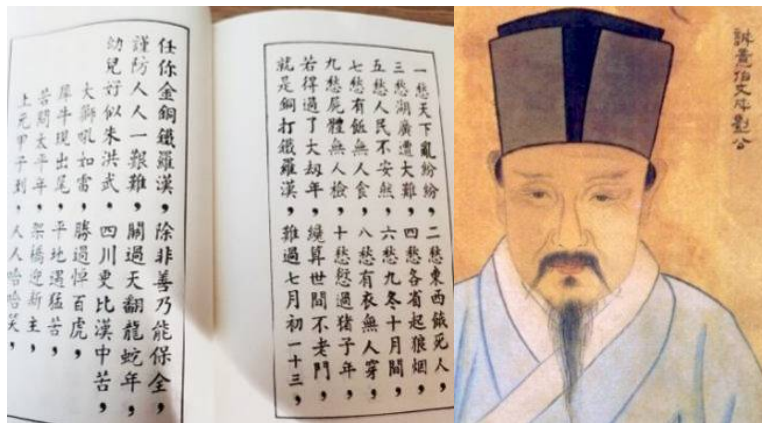 一愁天下亂紛紛，二愁東西餓死人，
三愁湖廣遭大難，四愁各省起狼烟，
五愁人民不安然，六愁九冬十月間，
七愁有飯無人食，八愁有衣無人穿，
九愁屍體無人檢，十愁愆過猪子年，
若得過了大劫年，纔算世間不老門，
就是銅打鐵羅漢，難過七月初一十三，
任你金銅鐵羅漢，除非善乃能保全，
謹防人人一艱難，關過天翻龍蛇年，
幼兒好似朱洪武，四川更比漢中苦，
大獅吼如雷，勝過悼百虎，
犀牛現出尾，平地遇猛苦，
苦問太平年，架橋迎新主，
上元甲子到，人人哈哈笑，
誠意伯文成劉公